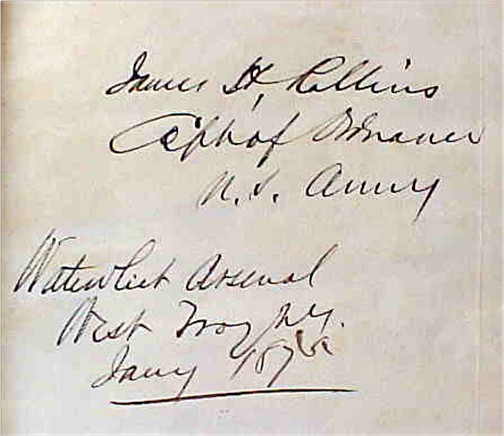 James H. Rollins
Capt of Ordnance
U.S. Army
Watervliet Arsenal
West Troy N.Y.
Jany